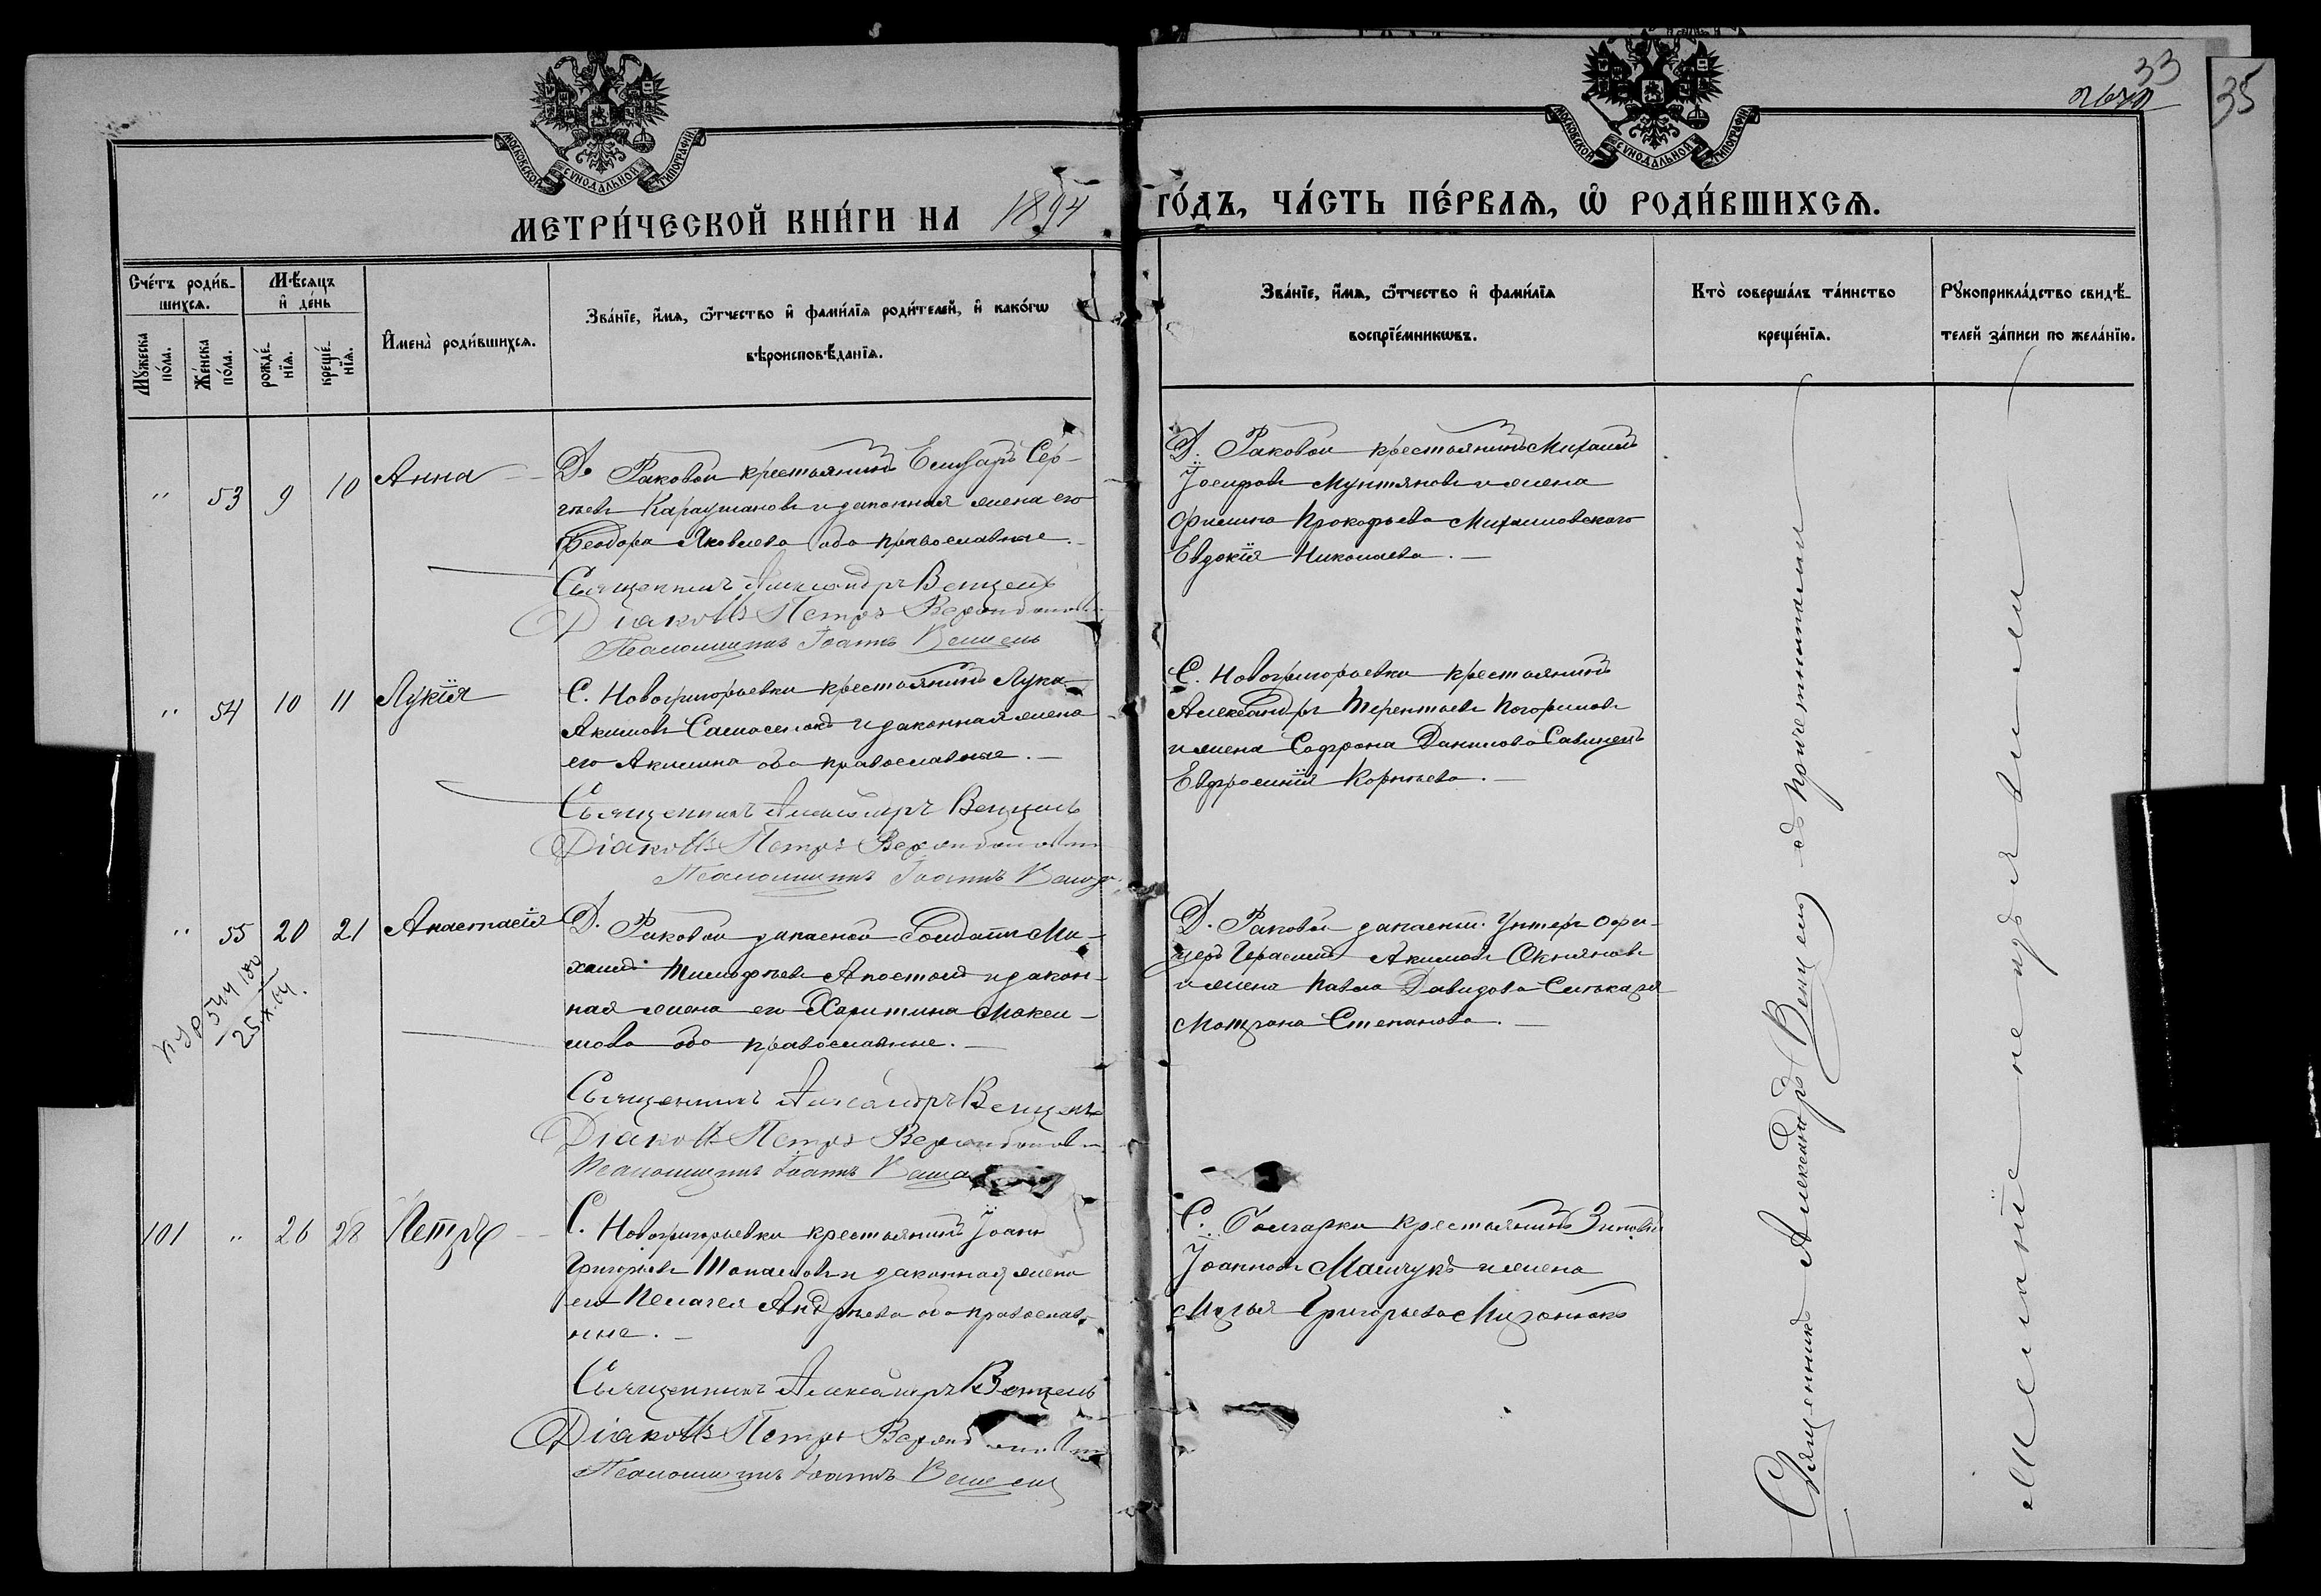 33
35
МОСКОВСКОЙ СѴНОДАЛЬНОЙ ТИПОГРАФІИ
МОСКОВСКОЙ СѴНОДАЛЬНОЙ ТИПОГРАФІИ
МЕТРИ́ЧЕСКОЙ КНИ́ГИ НА 1894 ГО́ДЪ, ЧА́СТЬ ПЕ́РВАЯ, Ѿ РОДИ́ВШИХСЯ.
Сче́тъ роди́в-
шихся.
Мѣсяцъ
и҆ де́нь
Му́жеска
по́ла.
Же́нска
по́ла.
рожде́-
нїя.
креще́-
нїя.
И҆мена̀ роди́вшихся.
Зва́нїе, и҆́мя, ѻ҆́тчество и҆ фами́лїя роди́телей, и҆ како́гѡ
вѣроисповѣ́данїя.
Зва́нїе, и҆́мя, ѻ҆́тчество и҆ фами́лїя
воспрїе́мникѡвъ.
Кто̀ соверша́лъ та́инство
креще́нїя.
Рꙋкоприкла́дство свидѣ́-
телей за́писи по жела́нїю.
" 53 9 10 Анна
Д. Раковой крестьянинъ Елизаръ Сер-
гѣевъ Караушановъ и законная жена его
Ѳеодора Яковлева оба православные.
Священникъ Александръ Венцель
Діаконъ Петръ
Псаломщикъ Іоаннъ
Д. Раковой крестьянинъ Михаилъ
Іосифовъ Мунтяновъ и жена
Прокофьева Михаиловского
Евдокія Николаева.
" 54 10 11 Лукія
С. Новогригорьевки крестьянинъ Лука
Акимовъ и законная жена
его Акилина оба православные.
Священникъ Александръ Венцель
Діаконъ Петръ
Псаломщикъ Іоаннъ
С. Новогригорьевки крестьянинъ
Александръ Терентьевъ Погориловъ
и жена Софрона Данилова Савинецъ
Евфросинія Корнѣева.
" 55 20 21 Анастасія
Д. Раковой запасной Солдатъ Ми-
хаилъ Тимофѣевъ Апостолъ и закон-
ная жена его Харитина Макси-
мова оба православные.
Священникъ Александръ Венцель
Діаконъ Петръ
Псаломщикъ Іоаннъ
Д. Раковой запасный Унтеръ Офи-
церъ Герасимъ Акимовъ Окняновъ
и жена Павла Давидова
Матрона Степанова.
25.X.04.
101 " 26 28 Петръ
С. Новогригорьевки крестьянинъ Іоаннъ
Григорьевъ и законная жена
его Пелагея Андрѣева оба православ-
ные.
Священникъ Александръ Венцель
Діаконъ Петръ
Псаломщикъ Іоаннъ
С. Болгарки крестьянинъ Зиновій
Іоанновъ и жена
Григорьева
Священникъ Александръ Венцель съ причетниками
Желаніе не изъявили